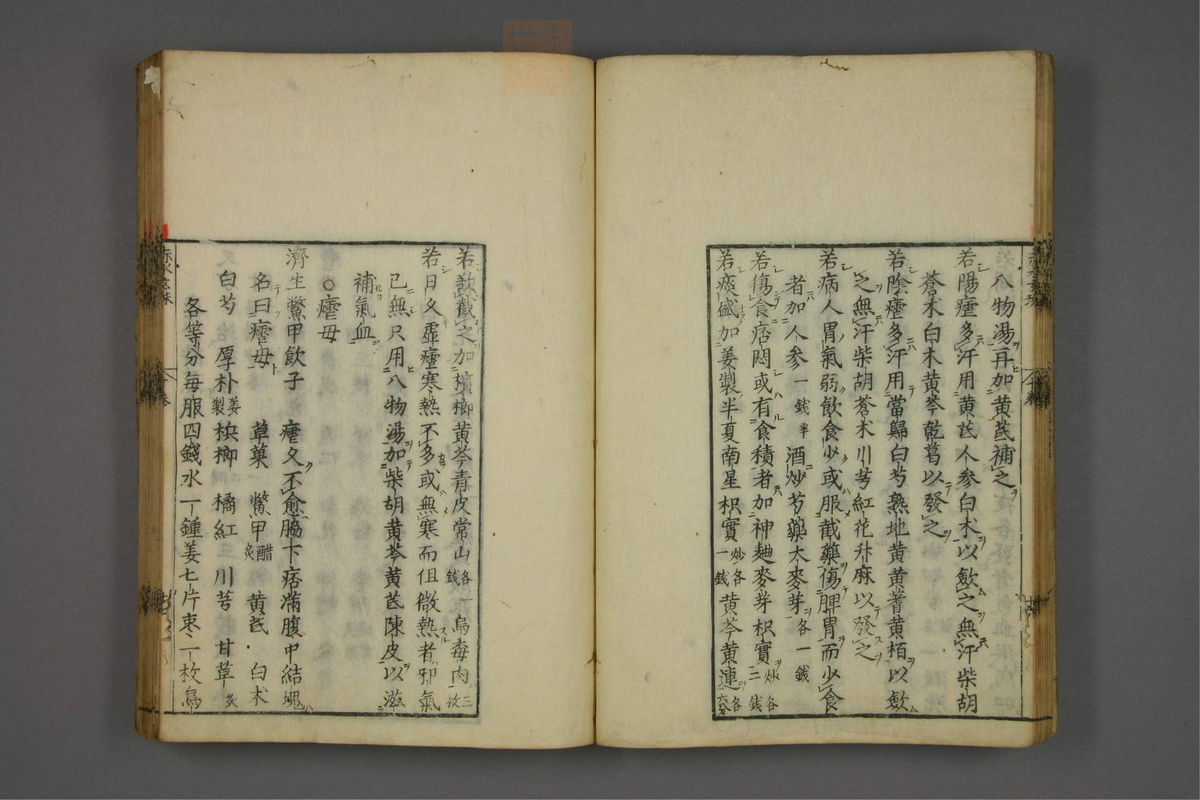 八物湯再加黄芪補之
若陽瘧多汗用黄芪人参白术以歛之無汗柴胡
蒼术白术黄芩乾葛以發之
若陰瘧多汗用當歸白芍熟地黄黄蓍黄栢以歛
之無汗柴胡蒼术川芎紅花升麻以發之
若病人胃氣弱飲食少或服截藥傷脾胃而少食
者加人参一錢半酒炒芍藥大麥芽各一錢
若傷食痞悶或有食積者加神麯麥芽枳實炒各二錢
若痰盛加姜製半夏南星枳實炒各一錢黄芩黄連各六分
若欲截之加檳榔黄芩青皮常山各一錢烏毒肉三枚
若日久虛瘧寒熱不多或無寒而但微熱者邪氣
已無只用八物湯加柴胡黄芩黄芪陳皮以滋
補氣血
○瘧母
濟生鱉甲飲子 瘧久不愈脇下痞滿腹中結塊
名曰瘧母 草菓 鱉甲醋炙 黄芪 白术
白芍 厚朴姜製 梹榔 橘紅 川芎 甘草炙
各等分每服四錢水一鍾姜七片枣一枚烏